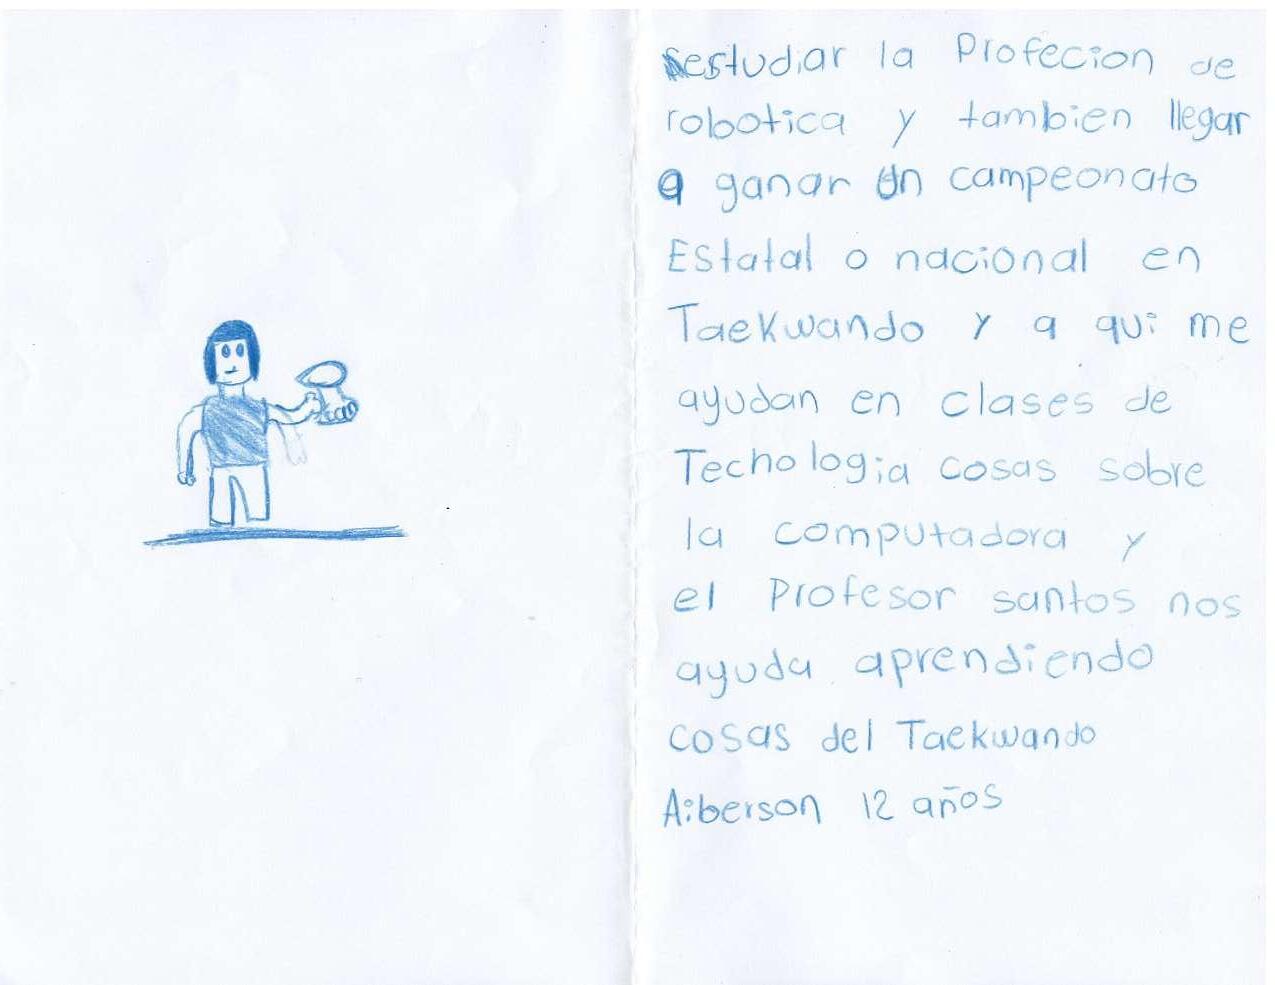 estudiar la Profecion de
robotica y tambien llegar
a ganar un campeonato
Estatal o nacional en
Taekwando y a qui me
ayudan en clases de
Techologia cosas sobre
la computadora y
el Profesor santos nos
ayuda aprendiendo
cosas del Taekwando
Aiberson 12 años